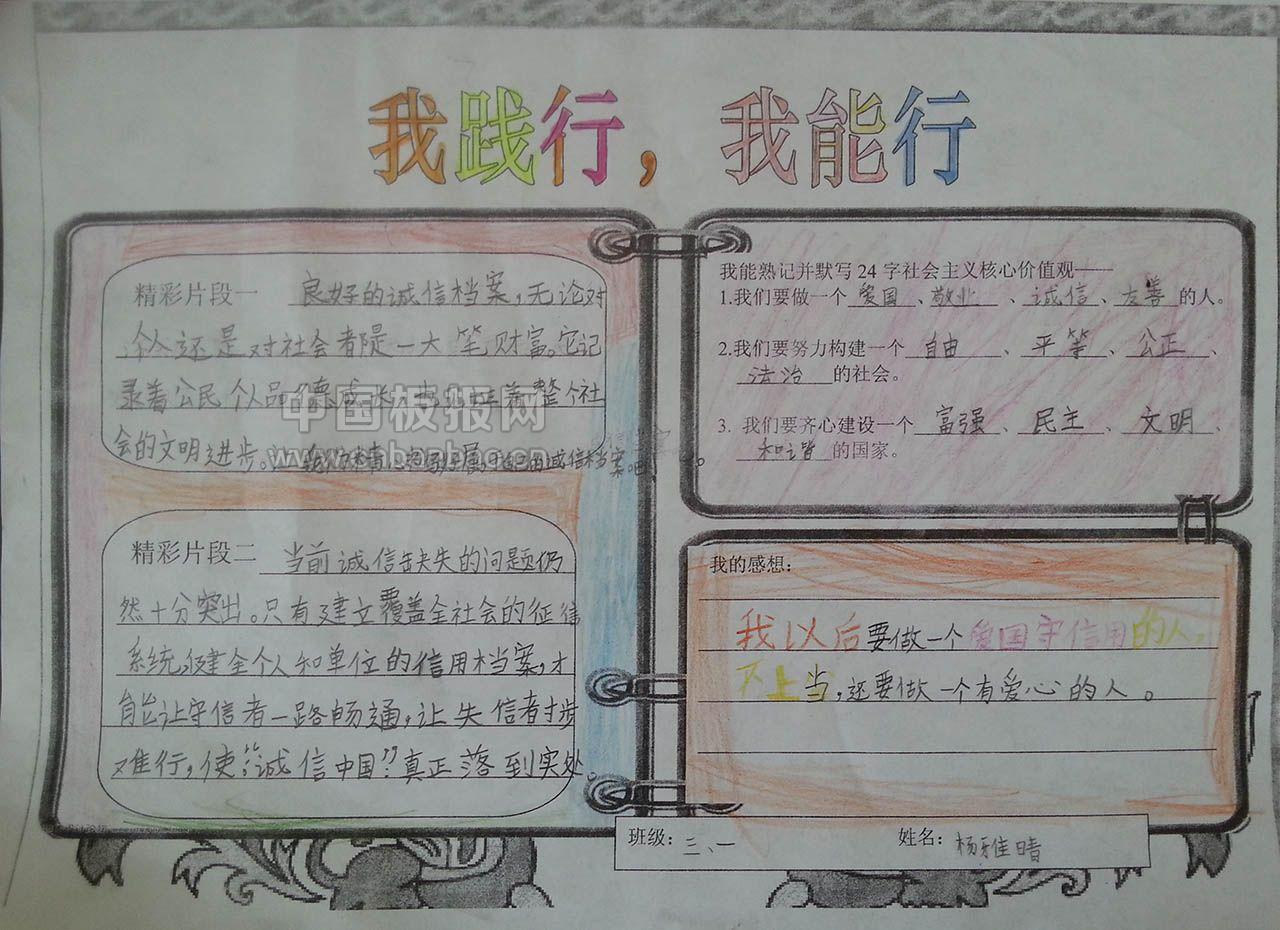 我践行，我能行
精彩片段一 良好的诚信档案,无论对
个人还是对社会都是一大笔财富。它记
录着公民个人品德成长,也 着整个社
会的文明进步。 诚信档案吧！
中国板报网
www.hbanbao.cn
精彩片段二 当前诚信缺失的问题仍
然十分突出。只有建立覆盖全社会的征信
系统,健全个人和单位的信用档案,才
能让守信者一路畅通,让失信者寸步
难行,使“诚信中国”真正落到实处
我能熟记并默写24字社会主义核心价值观——
1.我们要做一个 爱国 、敬业 、诚信 、友善 的人。
2.我们要努力构建一个 自由 、平等 、公正 、
法治 的社会。
3. 我们要齐心建设一个 富强 、民主 、文明 、
和谐 的国家。
我的感想：
我以后要做一个爱国守信用的人,
不上当,还要做一个有爱心的人。
班级：三、一 姓名：杨雅晴